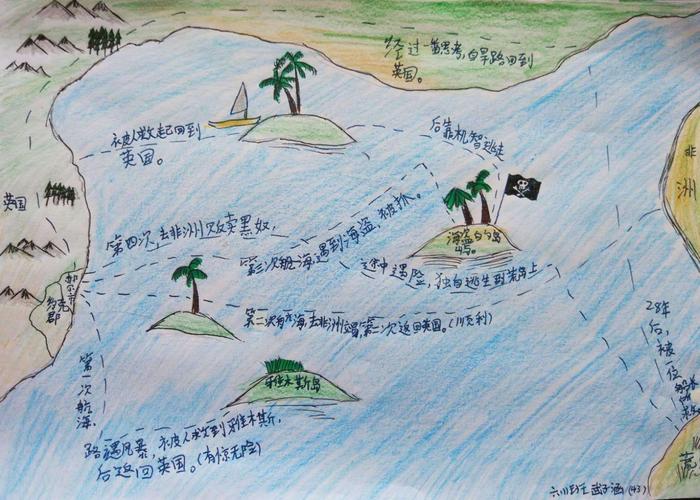 经过一番思考,自旱路回到
英国。
被人救起回到
英国。
后靠机智逃走
非
洲
英国
第四次,去非洲贩卖黑奴,
第三次航海,遇到海盗,被抓。
海盗的岛
屿。
途中遇险,独自逃生到荒岛上
约克
郡
第二次航海,去非洲,第一次返回英国。(顺利)
28年
后,被
一位
船长
第一次航海,
牙佳木斯岛
路遇风暴,被人救到牙佳木斯,
后返回英国。(有惊无险)
六(1)班 武子涵 (43)